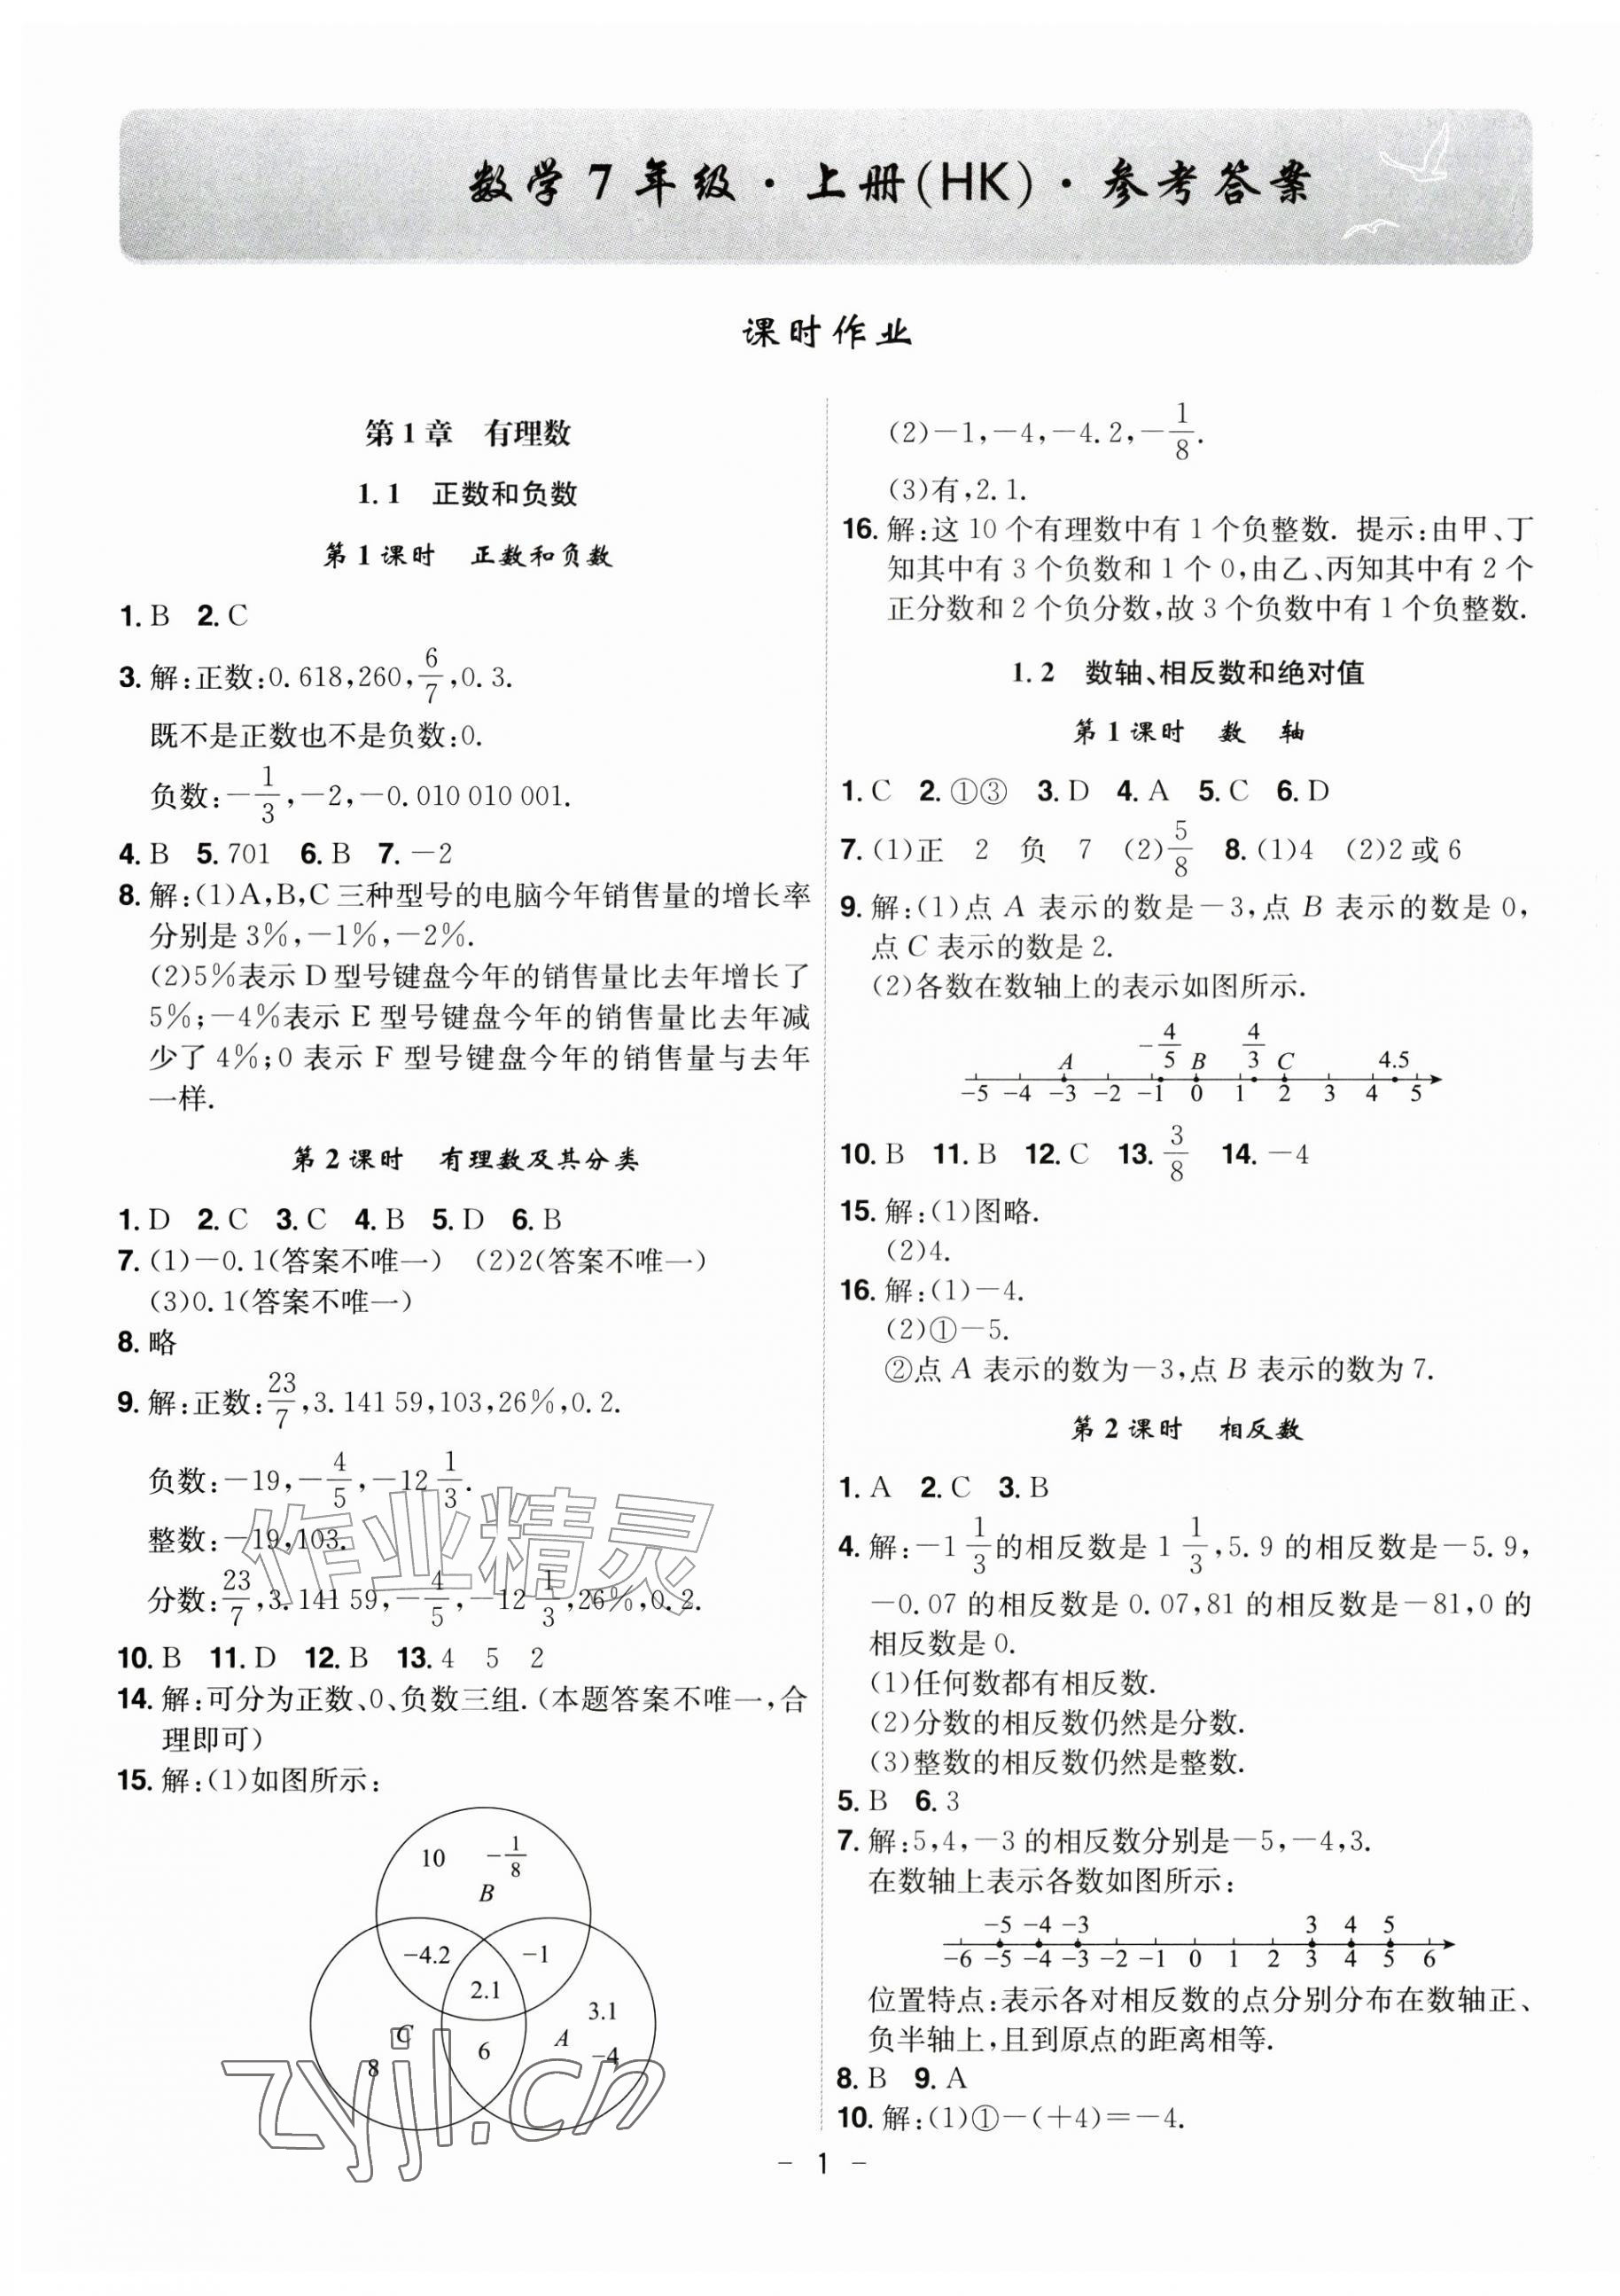 数学7年级·上册(HK)·参考答案
课时作业
第1章 有理数
1.1 正数和负数
第1课时 正数和负数
1. B 2. C
3. 解:正数:0.618,260,6/7,0.3.
既不是正数也不是负数:0.
负数:-1/3,-2,-0.010 010 001.
4. B 5. 701 6. B 7. -2
8. 解:(1)A,B,C三种型号的电脑今年销售量的增长率
分别是3%,-1%,-2%.
(2)5%表示D型号键盘今年的销售量比去年增长了
5%;-4%表示E型号键盘今年的销售量比去年减
少了4%;0表示F型号键盘今年的销售量与去年
一样.
第2课时 有理数及其分类
1. D 2. C 3. C 4. B 5. D 6. B
7. (1)-0.1(答案不唯一) (2)2(答案不唯一)
(3)0.1(答案不唯一)
8. 略
9. 解:正数:23/7,3.141 59,103,26%,0.2.
负数:-19,-4/5,-12 1/3.
整数:-19,103.
分数:23/7,3.141 59,-4/5,-12 1/3,26%,0.2.
10. B 11. D 12. B 13. 4 5 2
14. 解:可分为正数、0、负数三组.(本题答案不唯一,合
理即可)
15. 解:(1)如图所示:
10 -1/8
B
-4.2 -1
2.1
3.1
C 6 A
8 -4
(2)-1,-4,-4.2,-1/8.
(3)有,2.1.
16. 解:这10个有理数中有1个负整数. 提示:由甲、丁
知其中有3个负数和1个0,由乙、丙知其中有2个
正分数和2个负分数,故3个负数中有1个负整数.
1.2 数轴、相反数和绝对值
第1课时 数 轴
1. C 2. ①③ 3. D 4. A 5. C 6. D
7. (1)正 2 负 7 (2)5/8 8. (1)4 (2)2或6
9. 解:(1)点A表示的数是-3,点B表示的数是0,
点C表示的数是2.
(2)各数在数轴上的表示如图所示.
A -4/5 B 4/3 C 4.5
-5 -4 -3 -2 -1 0 1 2 3 4 5
10. B 11. B 12. C 13. 3/8 14. -4
15. 解:(1)图略.
(2)4.
16. 解:(1)-4.
(2)①-5.
②点A表示的数为-3,点B表示的数为7.
第2课时 相反数
1. A 2. C 3. B
4. 解:-1 1/3的相反数是1 1/3,5.9的相反数是-5.9,
-0.07的相反数是0.07,81的相反数是-81,0的
相反数是0.
(1)任何数都有相反数.
(2)分数的相反数仍然是分数.
(3)整数的相反数仍然是整数.
5. B 6. 3
7. 解:5,4,-3的相反数分别是-5,-4,3.
在数轴上表示各数如图所示:
-5 -4 -3 3 4 5
-6 -5 -4 -3 -2 -1 0 1 2 3 4 5 6
位置特点:表示各对相反数的点分别分布在数轴正、
负半轴上,且到原点的距离相等.
8. B 9. A
10. 解:(1)①-(+4)=-4.
作业精灵
zyjl.cn
- 1 -